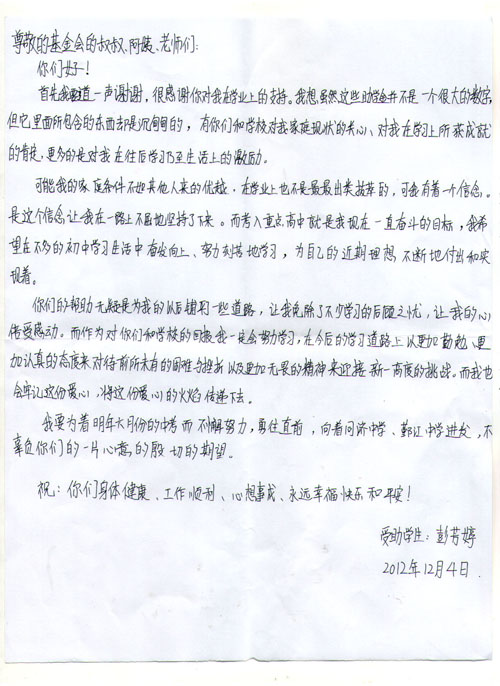 尊敬的基金会的叔叔、阿姨、老师们:
你们好!
首先我要道一声谢谢,很感谢你对我在学业上的支持。我想虽然这些助学金并不是一个很大的数字,
但它里面所包含的东西却是沉甸甸的,有你们和学校对我家庭现状的关心、对我在学习上所获成就
的肯定,更多的是对我在往后学习乃至生活上的激励。
可能我的家庭条件不如其他人来的优越,在学业上也不是最最出类拔萃的,可我有着一个信念。
是这个信念让我在一路上不屈地坚持了下来。而考入重点高中就是我现在一直奋斗的目标,我希
望在不多的初中学习生活中奋发向上、努力刻苦地学习,为自己的近期理想不断地付出和实
现着。
你们的帮助无疑是为我的以后铺到一些道路,让我免除了不少学习的后顾之忧,让我的心
倍受感动。而作为对你们和学校的回报我一定会努力学习,在今后的学习道路上以更加勤勉、更
加认真的态度来对待前所未有的困难与挫折以及更加无畏的精神来迎接新一高度的挑战。而我也
会牢记这份爱心,将这份爱心的火焰传递下去。
我要为着明年六月份的中考而不懈努力,勇往直前,向着同济中学、鄞江中学进发,不
辜负你们的一片心意,的殷切的期望。
祝:你们身体健康、工作顺利、心想事成、永远幸福快乐和平安!
受助学生:彭芳婷
2012年12月4日